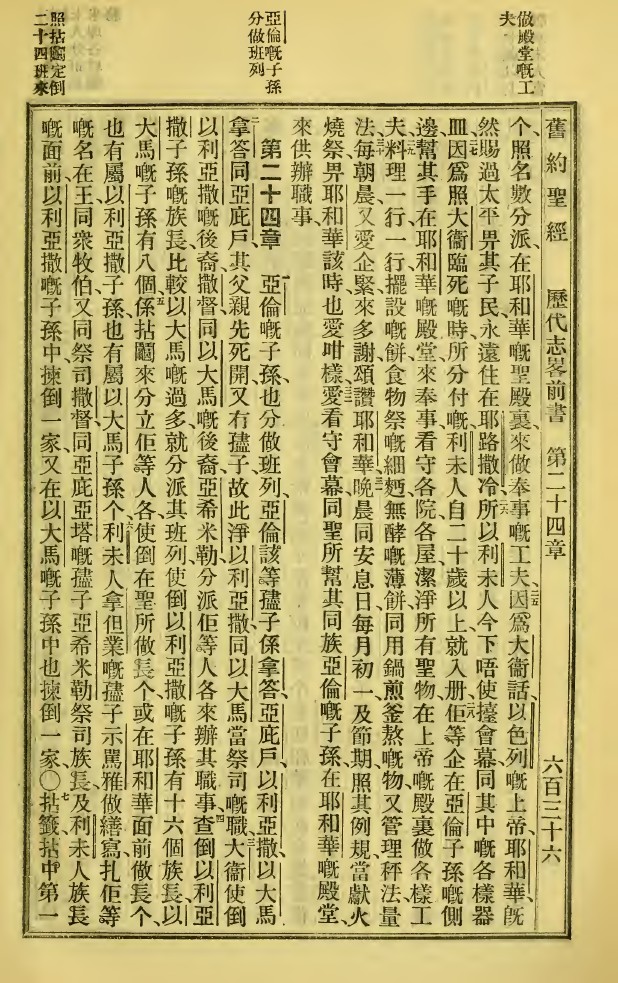 做殿堂嘅工
夫
亞倫嘅子孫
分做班列
照拈鬮定倒
二十四班來
舊約聖經　歷代志畧前書　第二十四章　六百三十六
个、照名數分派、在耶和華嘅聖殿裏、來做奉事嘅工夫、二五因爲大衞話、以色列嘅上帝耶和華、旣
然賜過太平畀其子民、永遠住在耶路撒冷、二六所以利未人今下唔使擡會幕、同其中嘅各樣器
皿、二七因爲照大衞臨死嘅時所分付嘅、利未人自二十歲以上、就入册、二八佢等企在亞倫子孫嘅側
邊、幫其手、在耶和華嘅殿堂來奉事、看守各院各屋、潔淨所有聖物、在上帝嘅殿裏做各樣工
夫、二九料理一行一行擺設嘅餅、食物祭嘅細麪、無酵嘅薄餅、同用鍋煎釜熬嘅物、又管理秤法量
法、三十每朝晨又愛企緊來多謝頌讚耶和華、晚晨同、三一安息日、每月初一、及節期、照其例規、當獻火
燒祭畀耶和華該時、也愛咁樣、三二愛看守會幕、同聖所、幫其同族亞倫嘅子孫、在耶和華嘅殿堂、
來供辦職事、
第二十四章　一亞倫嘅子孫也分做班列、亞倫該等孻子係拿答、亞庇戶、以利亞撒、以大馬、
二拿答同亞庇戶、其父親先死開、又冇孻子、故此淨以利亞撒同以大馬當祭司嘅職、三大衞使倒
以利亞撒嘅後裔撒督、同以大馬嘅後裔亞希米勒、分派佢等人各來辦其職事、四查倒以利亞
撒子孫嘅族長、比較以大馬嘅過多、就分派其班列、使倒以利亞撒嘅子孫有十六個族長、以
大馬嘅子孫有八個、五係拈鬮來分立佢等人、各使倒在聖所做長个、或在耶和華面前做長个、
也有屬以利亞撒子孫、也有屬以大馬子孫个、六利未人拿但業嘅孻子示罵雅做繕寫、扎佢等
嘅名、在王同衆牧伯、又同祭司撒督、同亞庇亞塔嘅孻子亞希米勒、祭司族長、及利未人族長
嘅面前、以利亞撒嘅子孫中揀倒一家、又在以大馬嘅子孫中也揀倒一家、〇七拈籤拈中第一